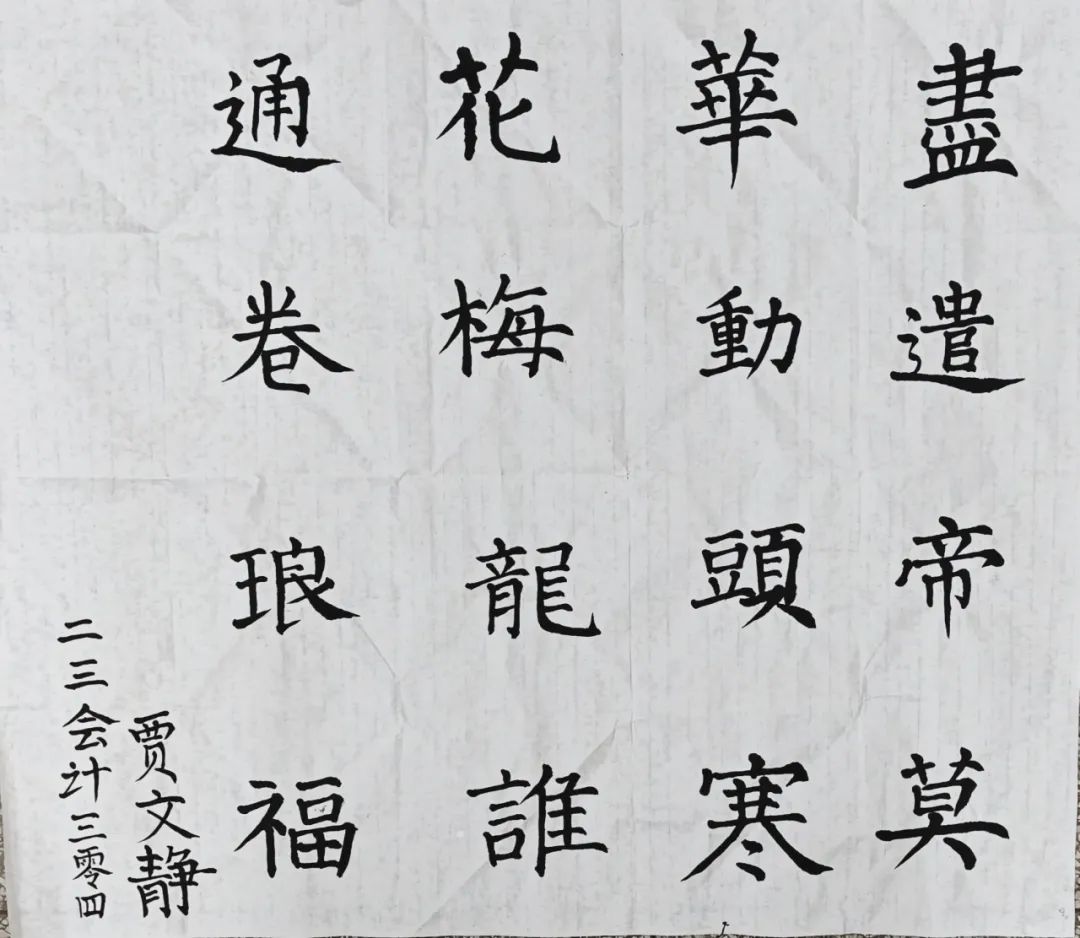 盡遣帝莫
華動頭寒
花梅龍誰
通卷琅福
贾文静
二三会计三零四